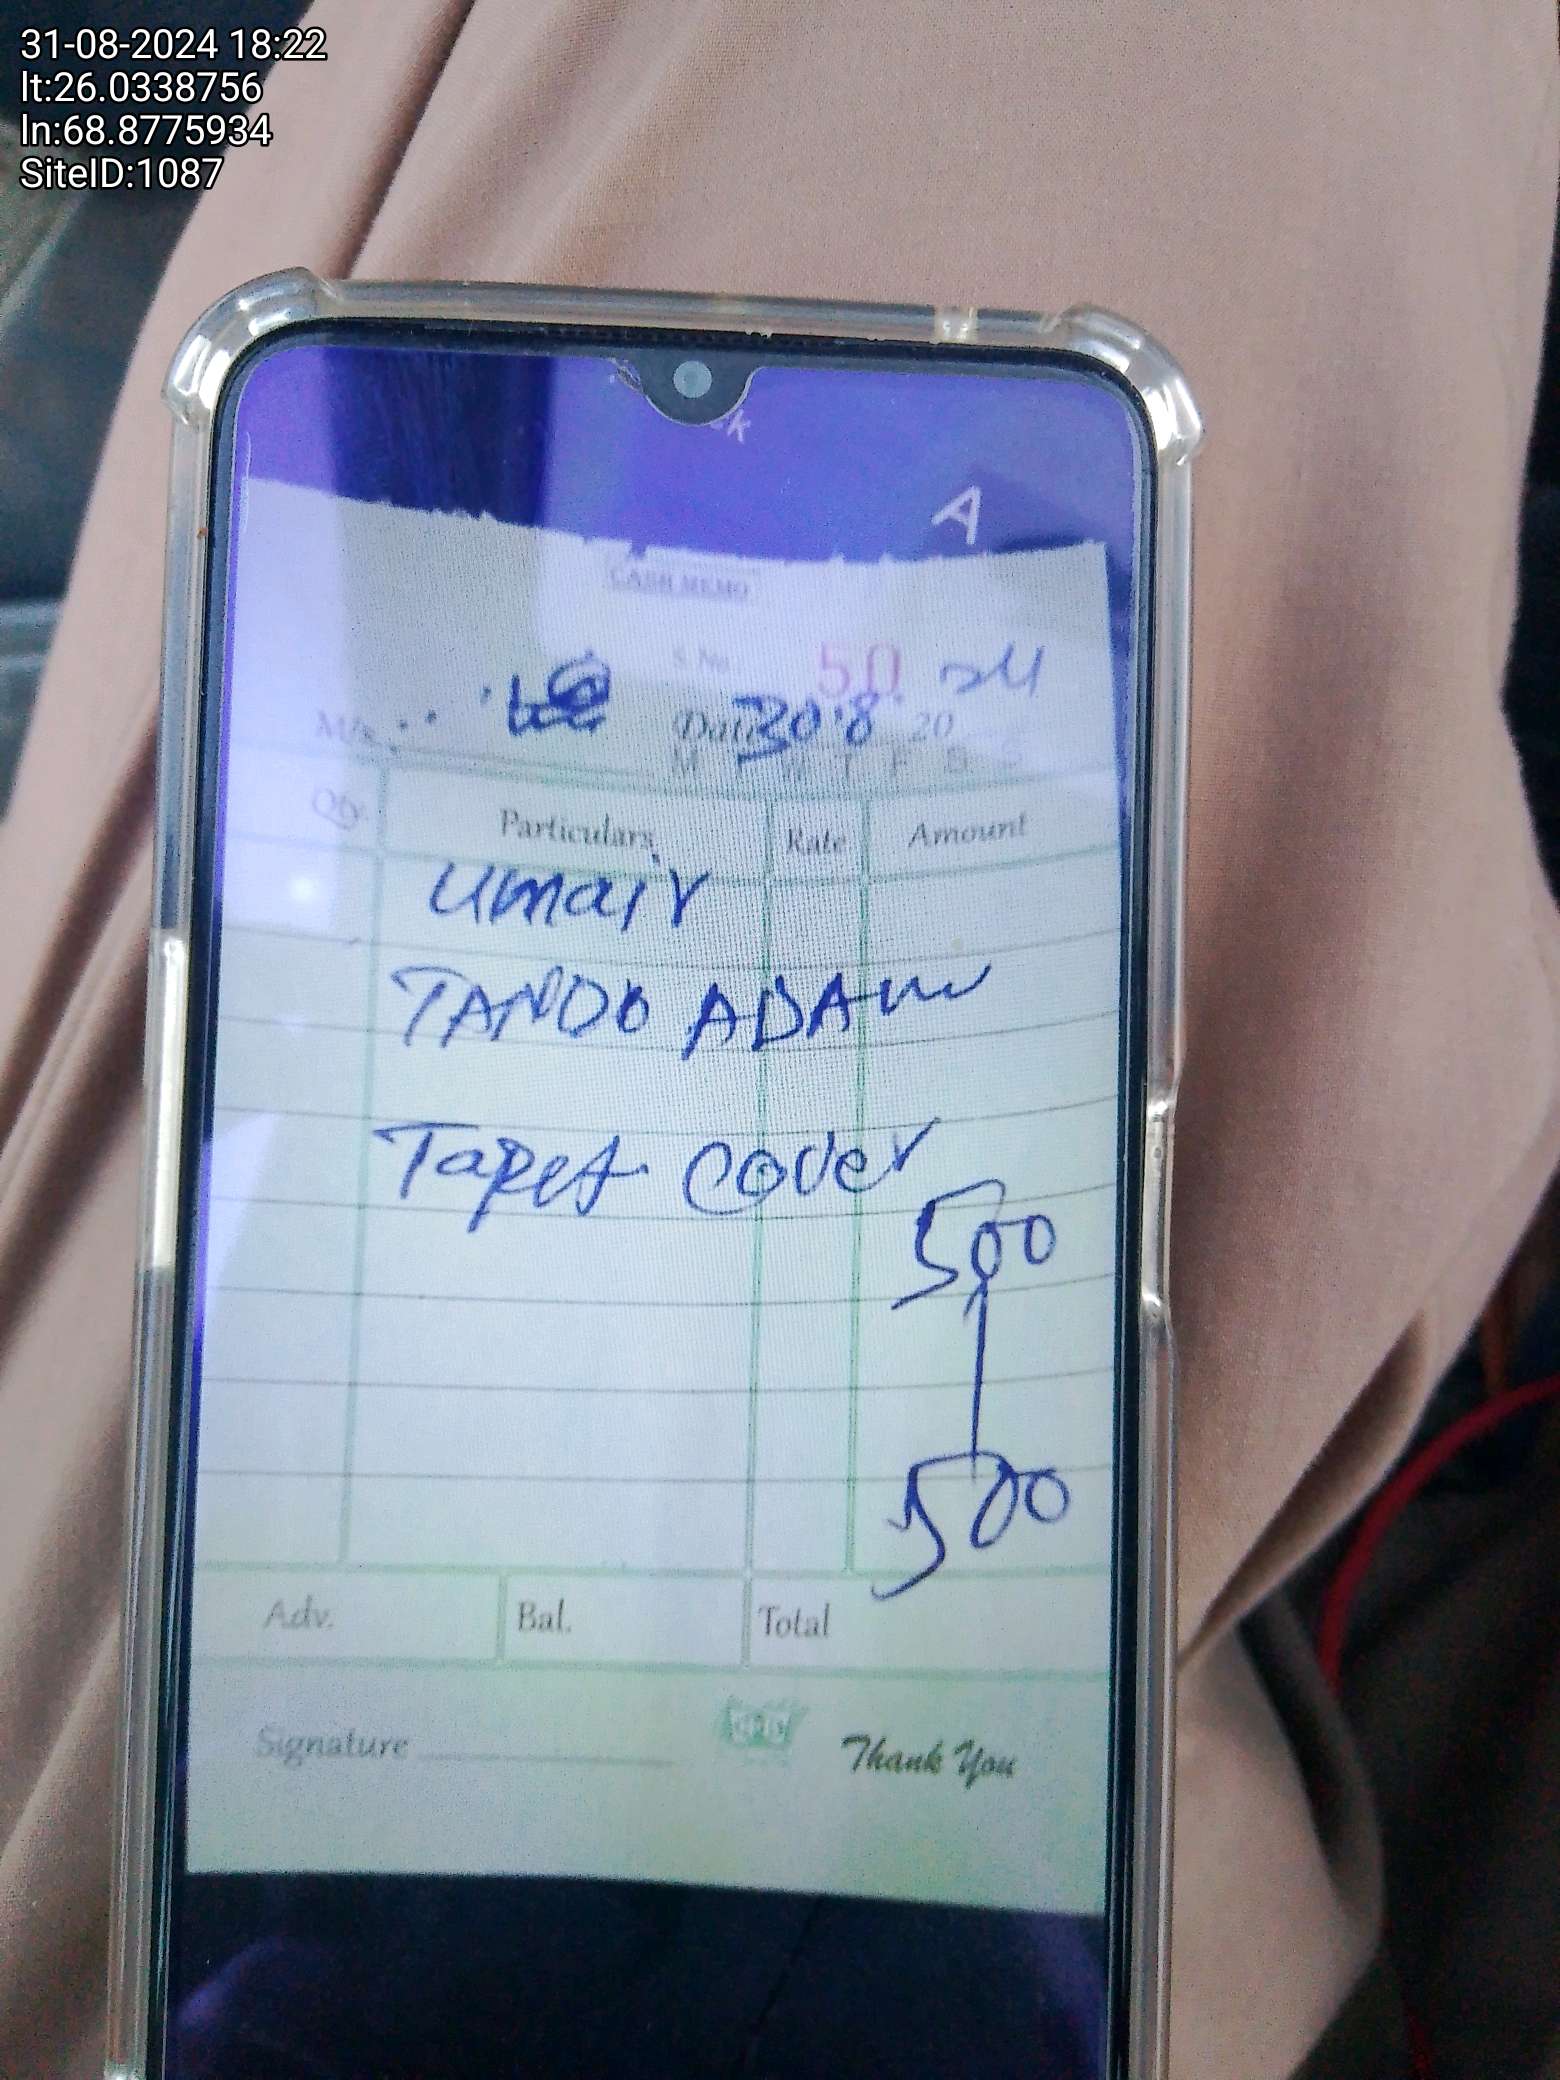 31-08-2024 18:22
lt:26.0338756
ln:68.8775934
SiteID:1087
A
CASH MEMO
S.No. 50
M/s Date 30.8 20 24
M T W T F S S
Qty. Particulars Rate Amount
umair
TANDO ADAm
Tapes cover
500
500
Adv. Bal. Total
Signature Thank You